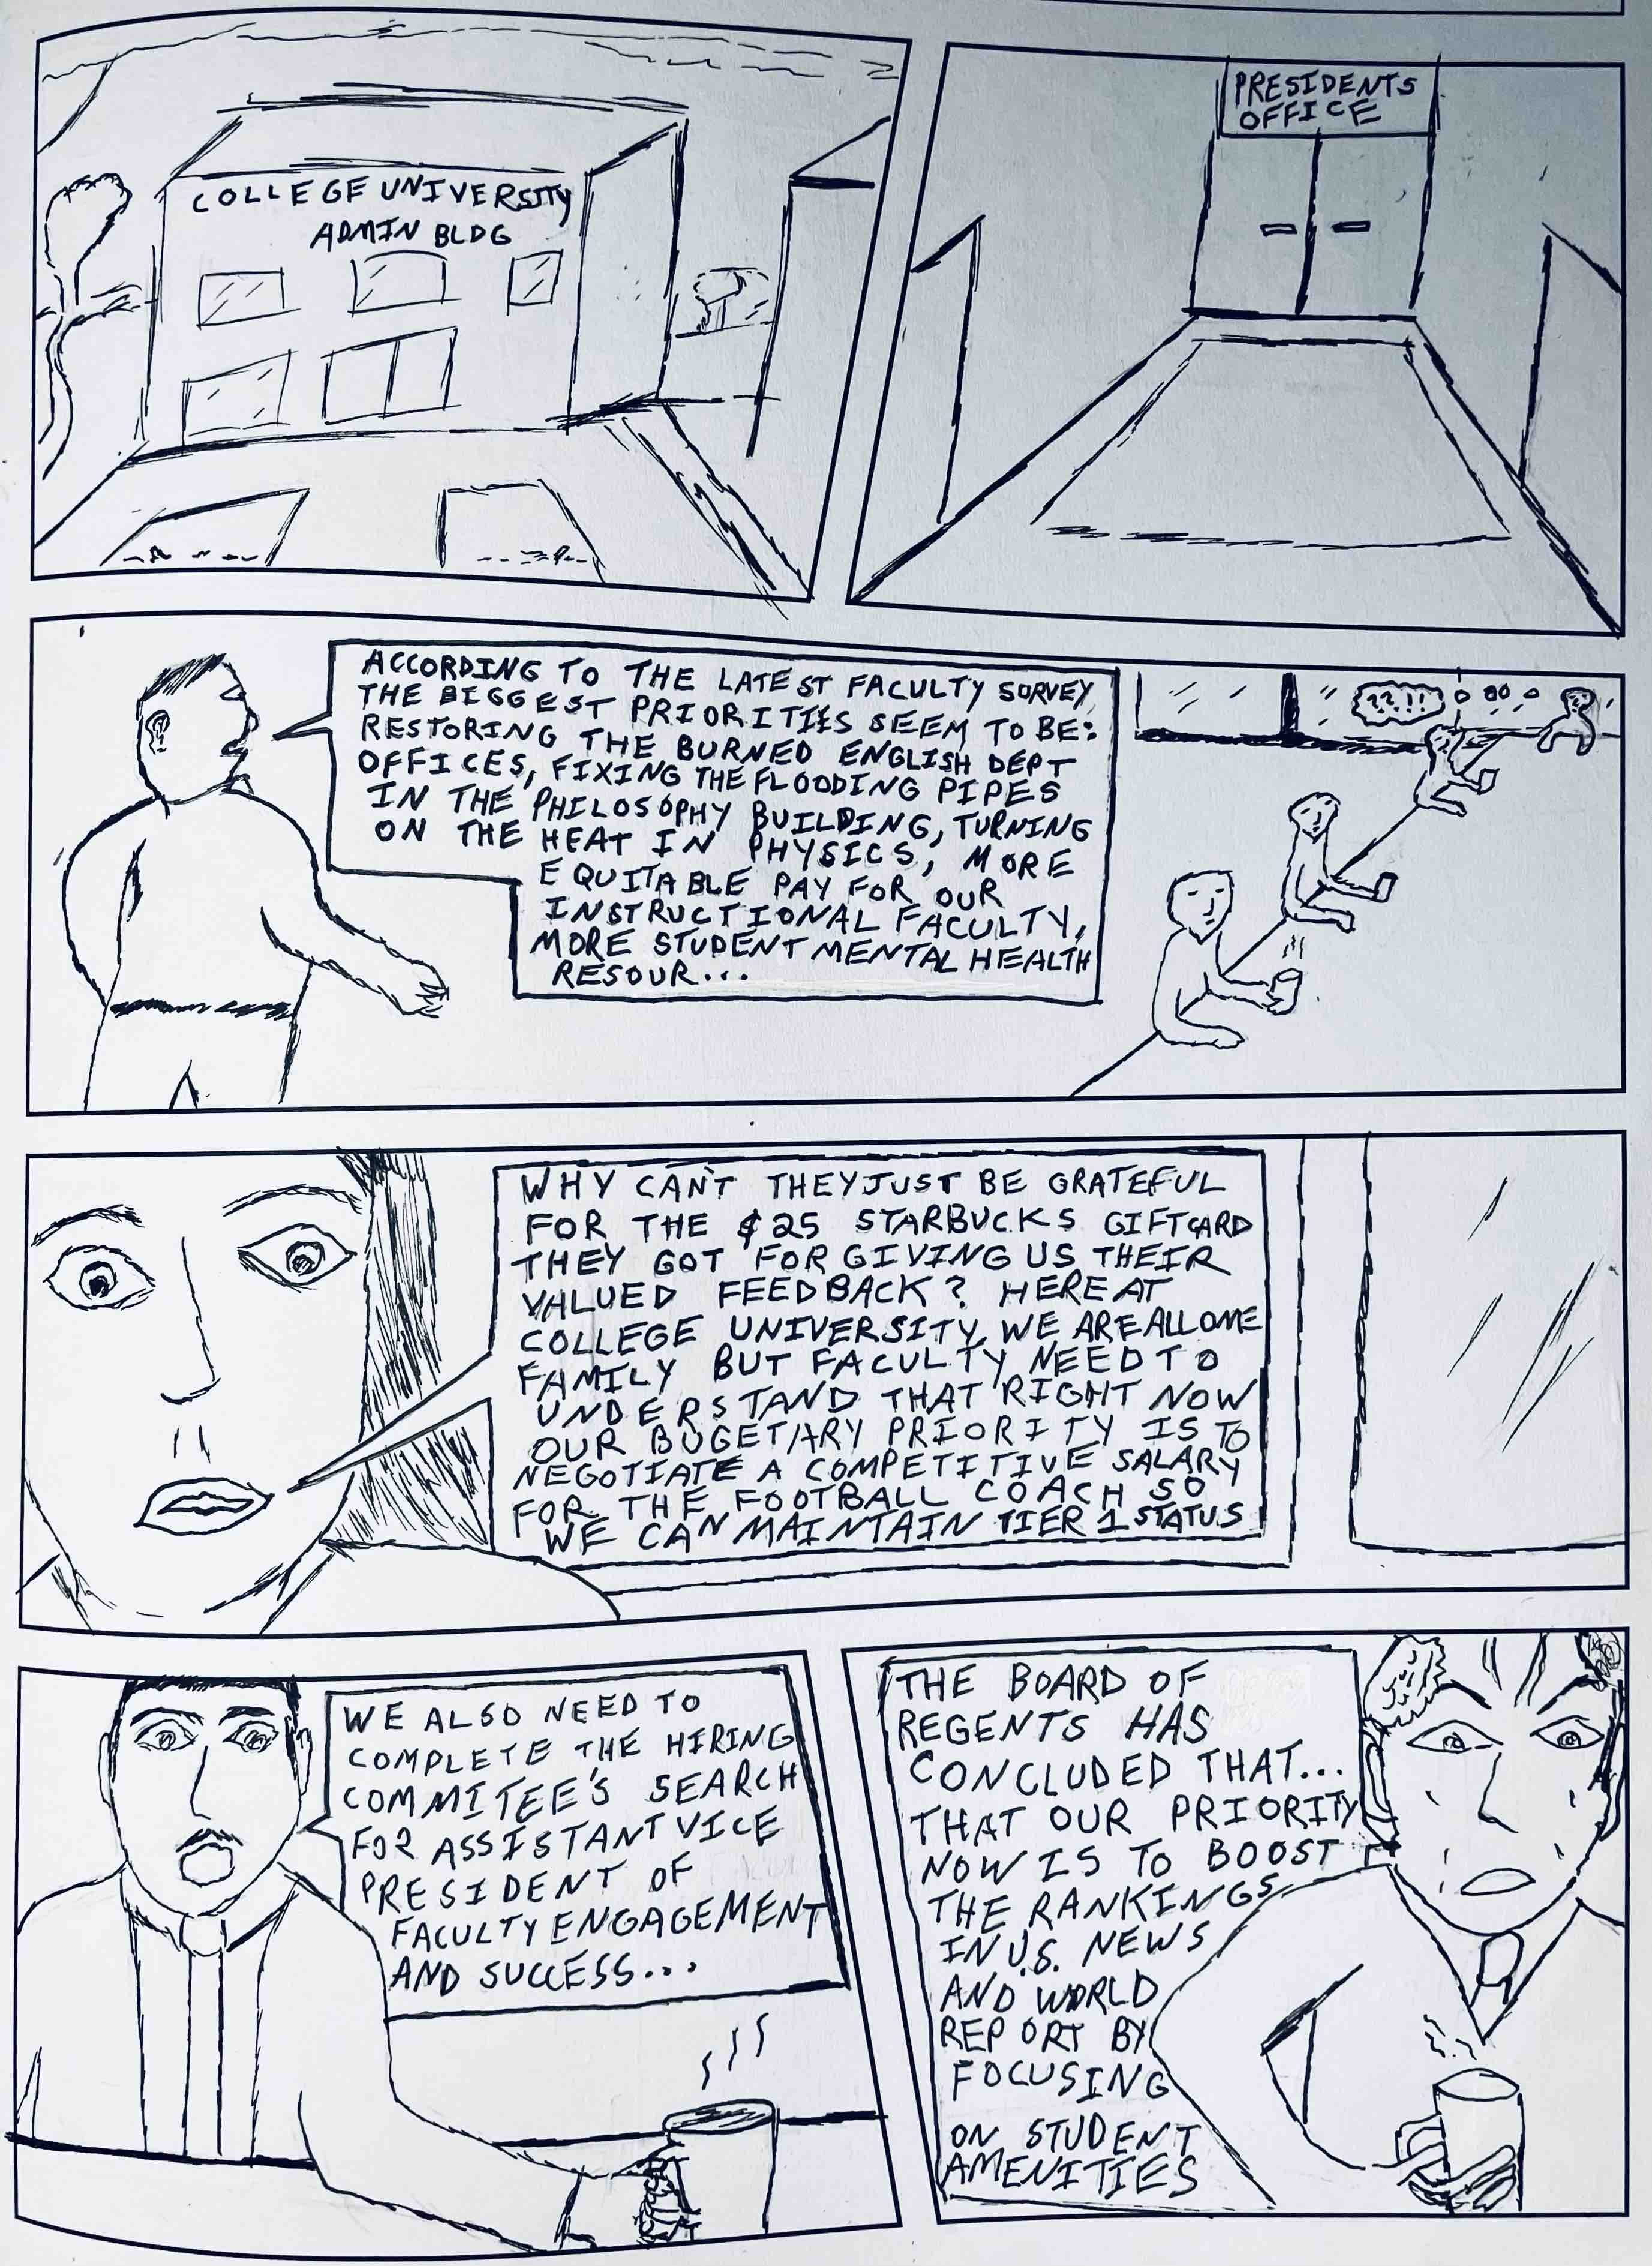 COLLEGE UNIVERSITY
ADMIN BLDG
PRESIDENTS
OFFICE
ACCORDING TO THE LATEST FACULTY SURVEY
THE BIGGEST PRIORITIES SEEM TO BE:
RESTORING THE BURNED ENGLISH DEPT
OFFICES, FIXING THE FLOODING PIPES
IN THE PHILOSOPHY BUILDING, TURNING
ON THE HEAT IN PHYSICS, MORE
EQUITABLE PAY FOR OUR
INSTRUCTIONAL FACULTY,
MORE STUDENT MENTAL HEALTH
RESOUR...
??!!
WHY CAN'T THEY JUST BE GRATEFUL
FOR THE $25 STARBUCKS GIFTCARD
THEY GOT FOR GIVING US THEIR
VALUED FEEDBACK? HERE AT
COLLEGE UNIVERSITY, WE ARE ALL ONE
FAMILY BUT FACULTY NEED TO
UNDERSTAND THAT RIGHT NOW
OUR BUGETARY PRIORITY IS TO
NEGOTIATE A COMPETITIVE SALARY
FOR THE FOOTBALL COACH SO
WE CAN MAINTAIN TIER 1 STATUS
WE ALSO NEED TO
COMPLETE THE HIRING
COMMITEE'S SEARCH
FOR ASSISTANT VICE
PRESIDENT OF
FACULTY ENGAGEMENT
AND SUCCESS...
THE BOARD OF
REGENTS HAS
CONCLUDED THAT...
THAT OUR PRIORITY
NOW IS TO BOOST
THE RANKINGS
IN U.S. NEWS
AND WORLD
REPORT BY
FOCUSING
ON STUDENT
AMENITIES